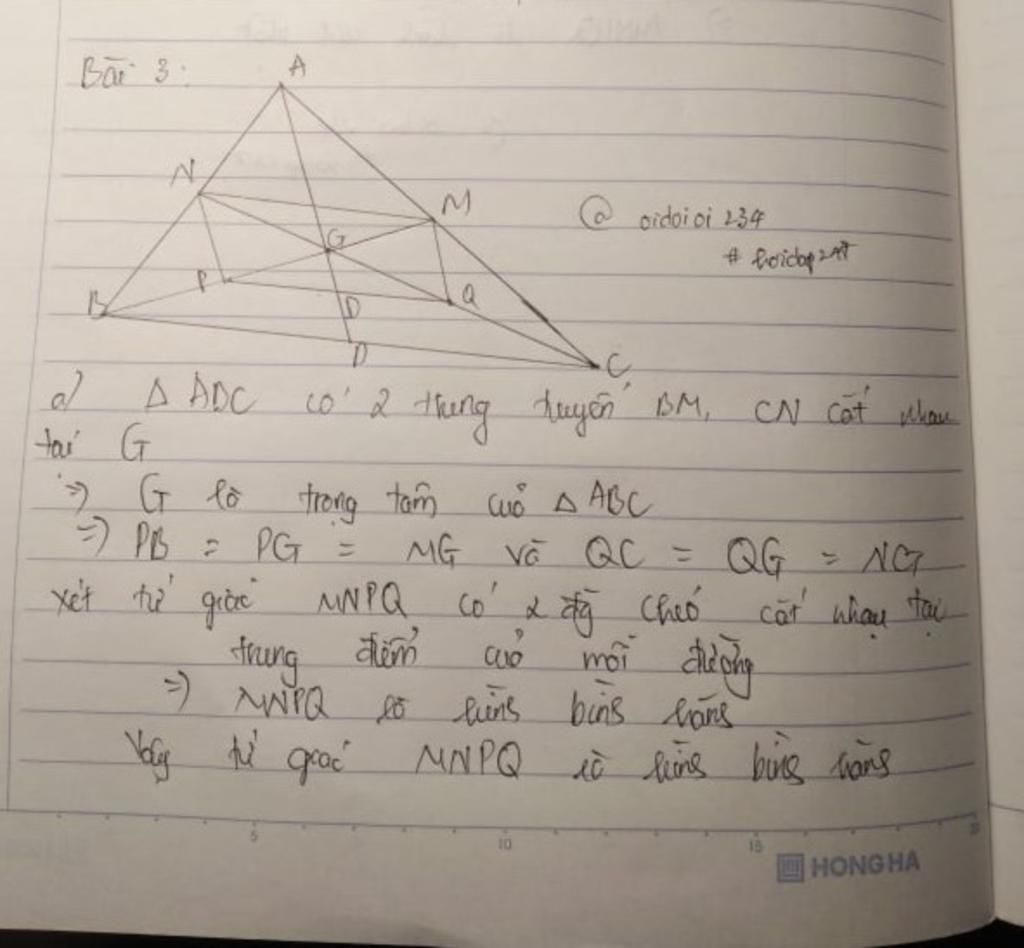 Bài 3:
A
N
M
@ oidoioi 234
# hoidap247
G
P
Q
B
D
D
C
a) Δ ABC có 2 trung tuyến BM, CN cắt nhau
tại G
=> G là trọng tâm củả Δ ABC
=> PB = PG = MG và QC = QG = NG
xét tứ giác MNPQ có 2 đg chéo cắt nhau tại
trung điểm củả mỗi đường
=> MNPQ là hình bình hành
Vậy tứ giác MNPQ là hình bình hành
5
10
15
HONG HA